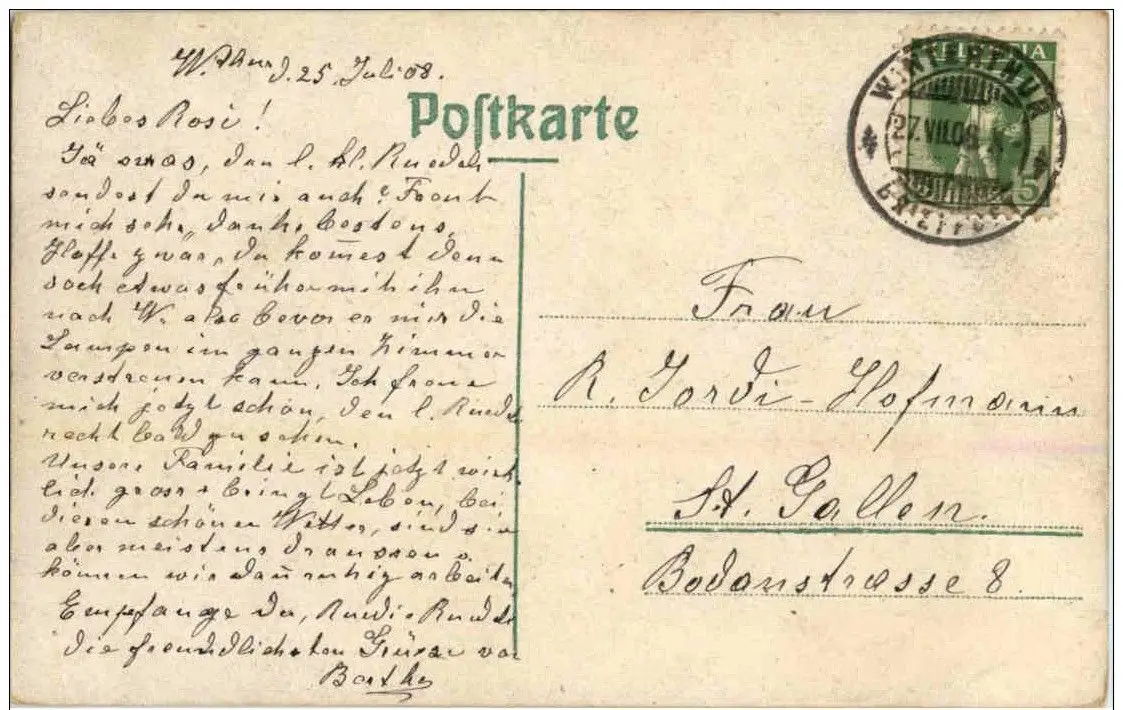 W.thur, d. 25. Juli 08.
Postkarte
Liebes Rosi!
Jä swas, den l. kl. Ruedeli
sendest du mir auch? Freut
mich sehr, danke bestens.
Hoffe zwar, du kom̅est denn
doch etwas früher mit ihn
nach W. also bevor er mir die
Lampen im ganzen Zimmer
verstreuen kann. Ich freue
mich jetzt schon, den l. Ruedi
recht bald zu sehen.
Unsere Familie ist jetzt wirk
lich gross & bringt Leben, bei
diesen schönen Wetter, sind sie
aber meistens draussen &
können wir dan̅ ruhig arbeiten
Empfange du, Ruedi & Ruedeli
die freundlichsten Grüsse von
Bertha
HELVETIA
5
WINTERTHUR
27.VII.08.
BRIEFPOST
Frau
R. Jordi-Hofmann
St. Gallen.
Bodanstrasse 8.